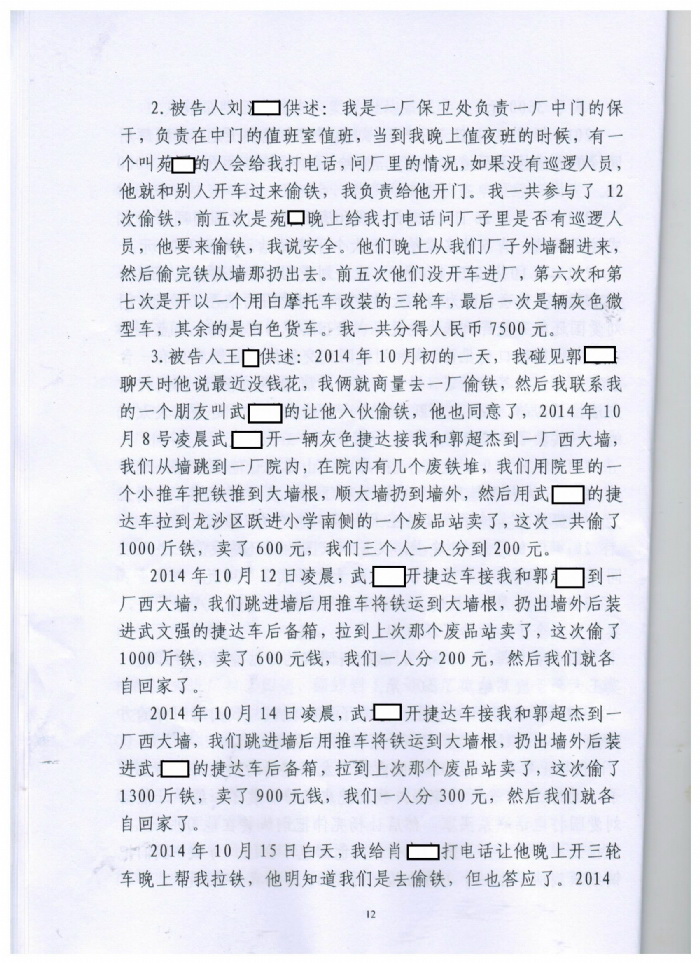 2.被告人刘 供述：我是一厂保卫处负责一厂中门的保
干，负责在中门的值班室值班，当到我晚上值夜班的时候，有一
个叫苑 的人会给我打电话，问厂里的情况，如果没有巡逻人员，
他就和别人开车过来偷铁，我负责给他开门。我一共参与了 12
次偷铁，前五次是苑 晚上给我打电话问厂子里是否有巡逻人
员，他要来偷铁，我说安全。他们晚上从我们厂子外墙翻进来，
然后偷完铁从墙那扔出去。前五次他们没开车进厂，第六次和第
七次是开以一个用白摩托车改装的三轮车，最后一次是辆灰色微
型车，其余的是白色货车。我一共分得人民币 7500 元。
3.被告人王 供述：2014 年 10 月初的一天，我碰见郭
聊天时他说最近没钱花，我俩就商量去一厂偷铁，然后我联系我
的一个朋友叫武 的让他入伙偷铁，他也同意了，2014 年 10
月 8 号凌晨武 开一辆灰色捷达接我和郭超杰到一厂西大墙，
我们从墙跳到一厂院内，在院内有几个废铁堆，我们用院里的一
个小推车把铁推到大墙根，顺大墙扔到墙外，然后用武 的捷
达车拉到龙沙区跃进小学南侧的一个废品站卖了，这次一共偷了
1000 斤铁，卖了 600 元，我们三个人一人分到 200 元。
2014 年 10 月 12 日凌晨，武 开捷达车接我和郭 到一
厂西大墙，我们跳进墙后用推车将铁运到大墙根，扔出墙外后装
进武文强的捷达车后备箱，拉到上次那个废品站卖了，这次偷了
1000 斤铁，卖了 600 元钱，我们一人分 200 元，然后我们就各
自回家了。
2014 年 10 月 14 日凌晨，武 开捷达车接我和郭超杰到一
厂西大墙，我们跳进墙后用推车将铁运到大墙根，扔出墙外后装
进武 的捷达车后备箱，拉到上次那个废品站卖了，这次偷了
1300 斤铁，卖了 900 元钱，我们一人分 300 元，然后我们就各
自回家了。
2014 年 10 月 15 日白天，我给肖 打电话让他晚上开三轮
车晚上帮我拉铁，他明知道我们是去偷铁，但也答应了。2014
12